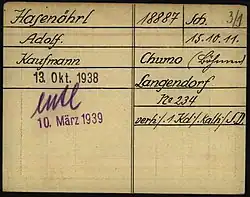 Hasenöhrl 18887 Sch. 3/1
Adolf. 15.10.11.
Kaufmann Chumo (Böhmen)
13. Okt. 1938 Langendorf
No 234
entl verh/. 1 Kd/. kath/. S.D.
10. März 1939